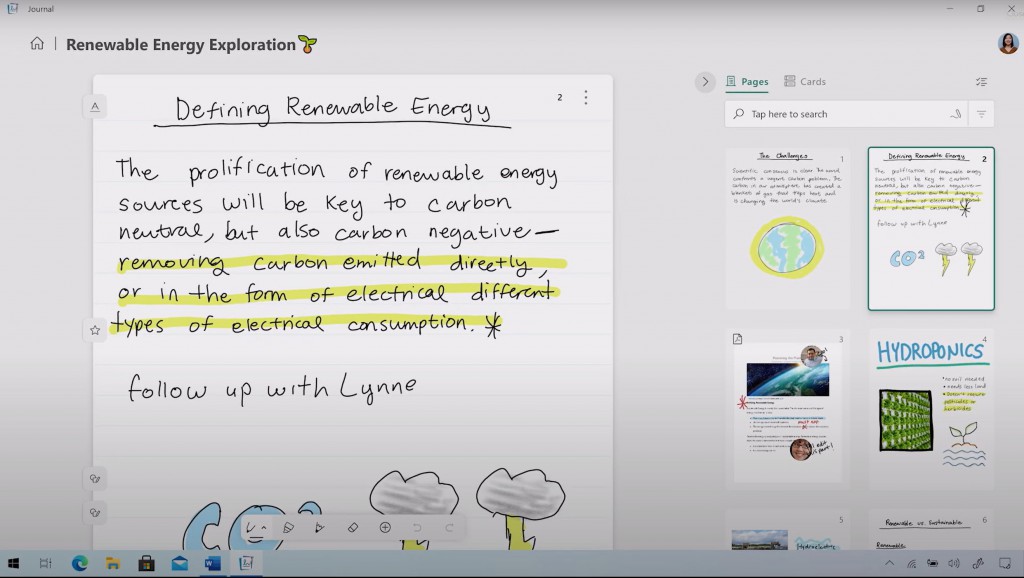 Journal
Renewable Energy Exploration
2
Defining Renewable Energy
The prolification of renewable energy
sources will be key to carbon
neutral, but also carbon negative—
removing carbon emitted directly,
or in the form of electrical different
types of electrical consumption. *
follow up with Lynne
CO2
Pages
Cards
Tap here to search
The Challenges
1
Defining Renewable Energy
2
The prolification of renewable energy
sources will be key to carbon
neutral, but also carbon negative—
removing carbon emitted directly,
or in the form of electrical different
types of electrical consumption. *
follow up with Lynne
CO2
3
4
HYDROPONICS
•no soil needed
•needs less land
5
6
Renewable vs. Sustainable
Renewable